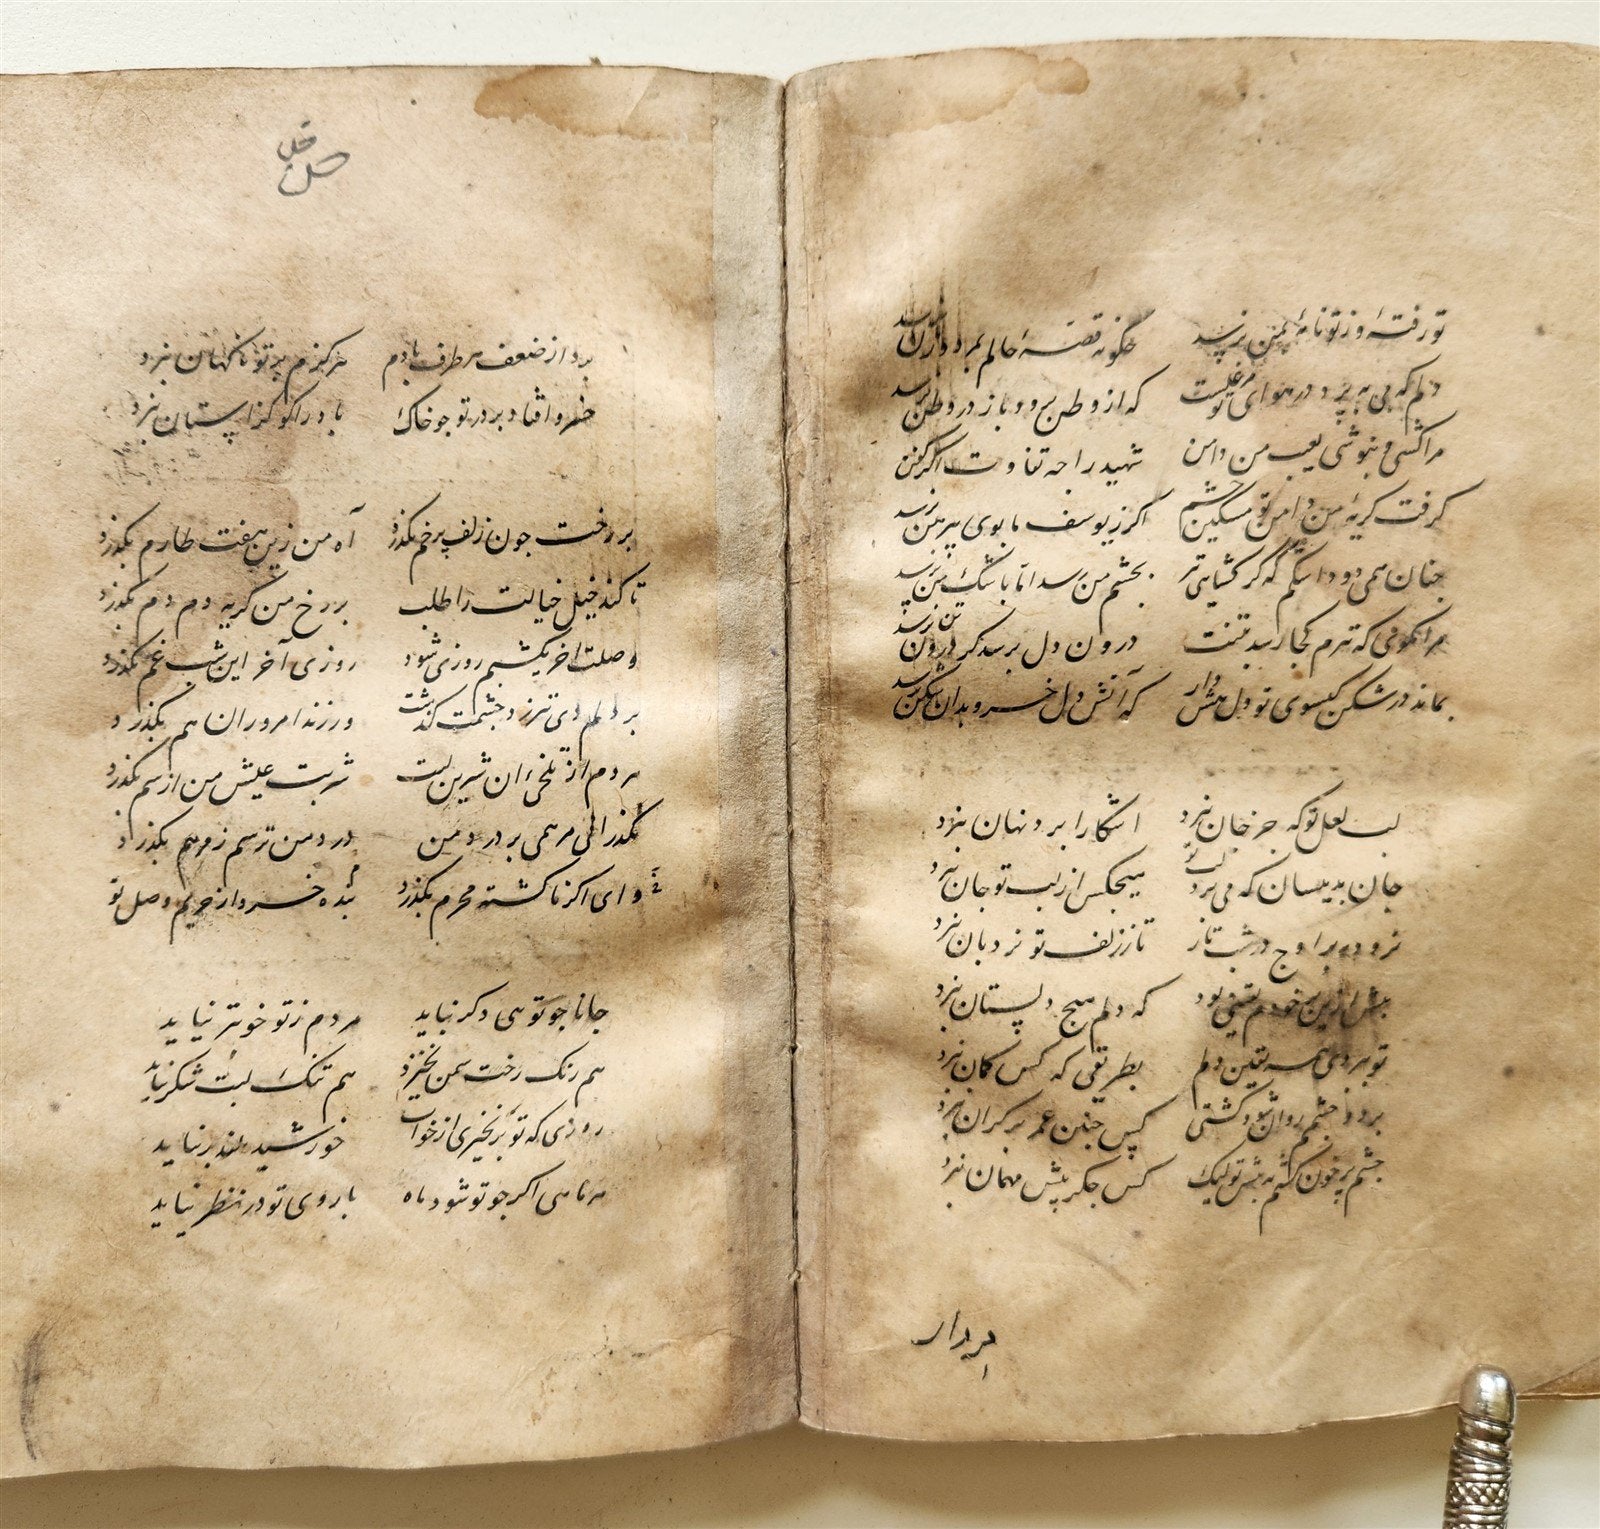 تو رفتهٔ و ز تو نامهٔ بمن نرسد چگونه قصهٔ حالم بمرد و زن نرسد
دلم که می بپرد در هوای تو مرغیست که از وطن برود و باز در وطن نرسد
مرا کشی و نپوشی بعیب من دامن شهید را چه تفاوت اگر کفن نرسد
گرفت گریهٔ من دامن تو مسکین چشم اگر ز یوسف ما بوی پیرهن نرسد
چنان همی دود اشکم که گر بچشم من رسد اما بانک من نرسد
مرا مگوی که تیرم کجا رسد بتنت درون دل برسد گر درون تن نرسد
بماند در شکن گیسوی تو دل هش دار که آتش دل خسرو بدان شکن نرسد
لب لعل تو که جز جان نبرد آشکارا برد نهان نبرد
جان بدینسان که می برد لب تو هیچکس از لب تو جان نبرد
نرود بر اوج در شب تار تا ز زلف تو نردبان نبرد
پیش ازین خود یقینی بود که دلم هیچ دلستان نبرد
تو ببردی به یقین دلم بطریقی که کس گمان نبرد
برود چشم روان شود کشتی کس چنین عمر بر کران نبرد
چشم پر خون کشم به پیش تو لیک کس جگر پیش مهمان نبرد
برد از
برد از ضعف هر طرف بادم هرگزم بر تو ناگهان نبرد
خسرو افتاد بر در تو چو خاک باد را کو کزاستان نبرد
بر رخت چون زلف پر خم بگذرد آه من زین هفت طارم بگذرد
تا کند خیل خیالت را طلب بر رخ من گریه دم دم بگذرد
وصلت آخر یکشبم روزی شود روزی آخر این شب غم بگذرد
بر دلم دی تیر زد چشمت گذشت ور زند امروز ان هم بگذرد
مردم از تلخی ان شیرین لبت شربت عیش من از سم بگذرد
بگذرانی مرهمی بر درد من درد من ترسم ز مرهم بگذرد
وای اگر ناگشته محرم بگذرد بنده خسرو از حریم وصل تو
جانا چو تو هی دگر نیاید مردم ز تو خوبتر نیاید
هم رنک رخت سمن نخیزد هم تنک لبت شکر نیاید
روزی که تو بر نخیزی از خواب خورشید بلند بر نیاید
هر ماهی اگر چو تو شود ماه با روی تو در نظر نیاید